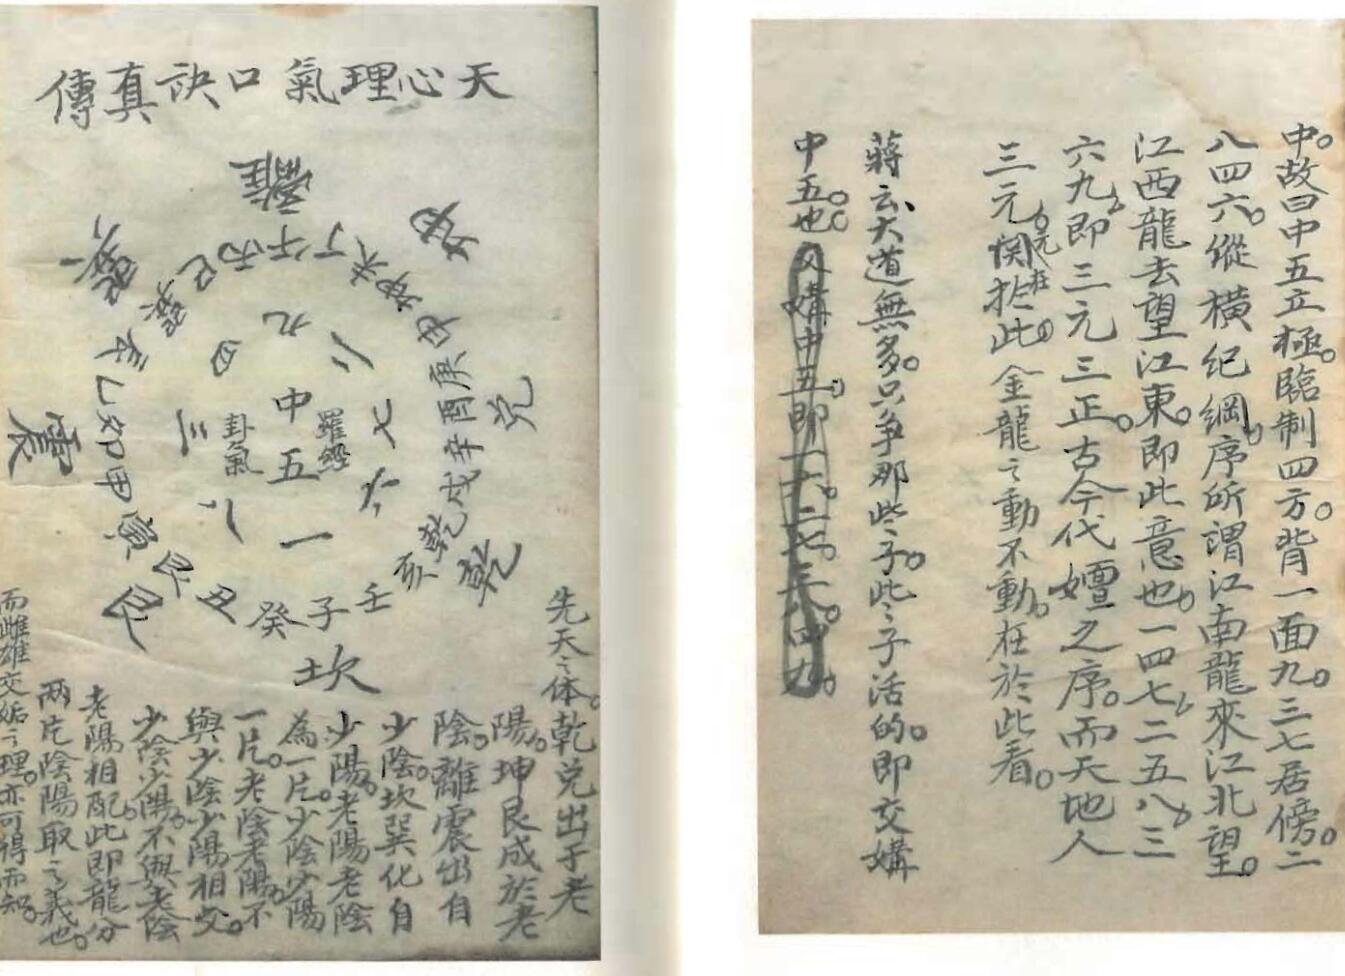 中。故曰中五立極。臨制四方。背一面九。三七居傍。二
八四六。縱橫紀綱。序所謂江南龍來江北望。
江西龍去望江東。即此意也。一四七二五八三
六九即三元三正。古今代嬗之序。而天地人
三元。関於此。金龍之動不動。在於此看。
元在
蔣云大道無多。只争那些子。此些子活的。即交媾
中五也。
交媾中五。即一六。二七。三八。四九。
天心理氣口訣真傳
離
坤
兌
乾
坎
艮
震
巽
丙午丁
未坤申
庚酉辛
戌乾亥
壬子癸
丑艮寅
甲卯乙
辰巽巳
九
二
七
六
一
八
三
四
中五
羅經
卦氣
先天之体。乾兌出于老
陽。坤艮成於老
陰。離震出自
少陰。坎巽化自
少陽。老陽老陰
為一片。少陰少陽
一片。老陰老陽。不
與少陰少陽相交。
少陰少陽。不與老陰
老陽相配。此即龍分
兩片陰陽取之義也。
而雌雄交姤之理。亦可得而知。